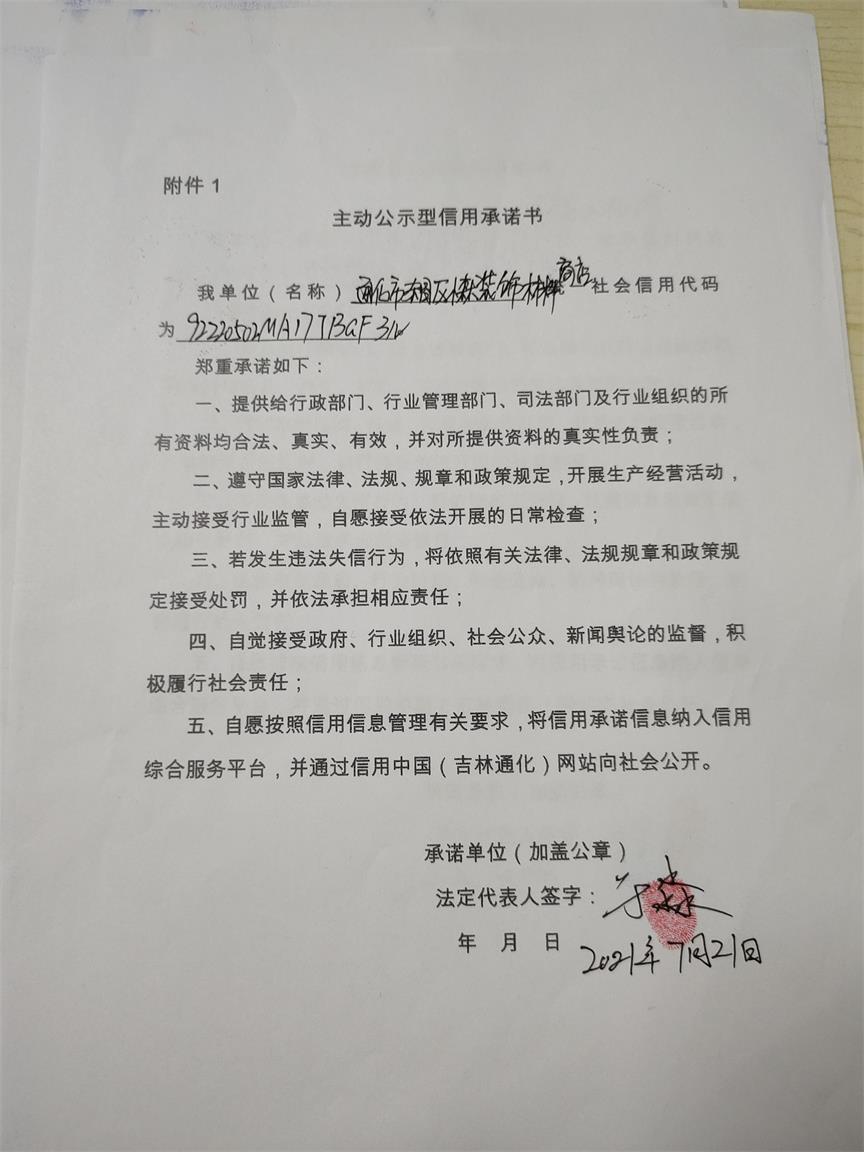 附件 1
主动公示型信用承诺书
我单位（名称）通化市东昌区 装饰材料商店 社会信用代码
为 92220502MA17TBGF3
郑重承诺如下：
一、提供给行政部门、行业管理部门、司法部门及行业组织的所
有资料均合法、真实、有效，并对所提供资料的真实性负责；
二、遵守国家法律、法规、规章和政策规定，开展生产经营活动，
主动接受行业监管，自愿接受依法开展的日常检查；
三、若发生违法失信行为，将依照有关法律、法规规章和政策规
定接受处罚，并依法承担相应责任；
四、自觉接受政府、行业组织、社会公众、新闻舆论的监督，积
极履行社会责任；
五、自愿按照信用信息管理有关要求，将信用承诺信息纳入信用
综合服务平台，并通过信用中国（吉林通化）网站向社会公开。
承诺单位（加盖公章）
法定代表人签字： 淼
年 月 日 2021年7月21日